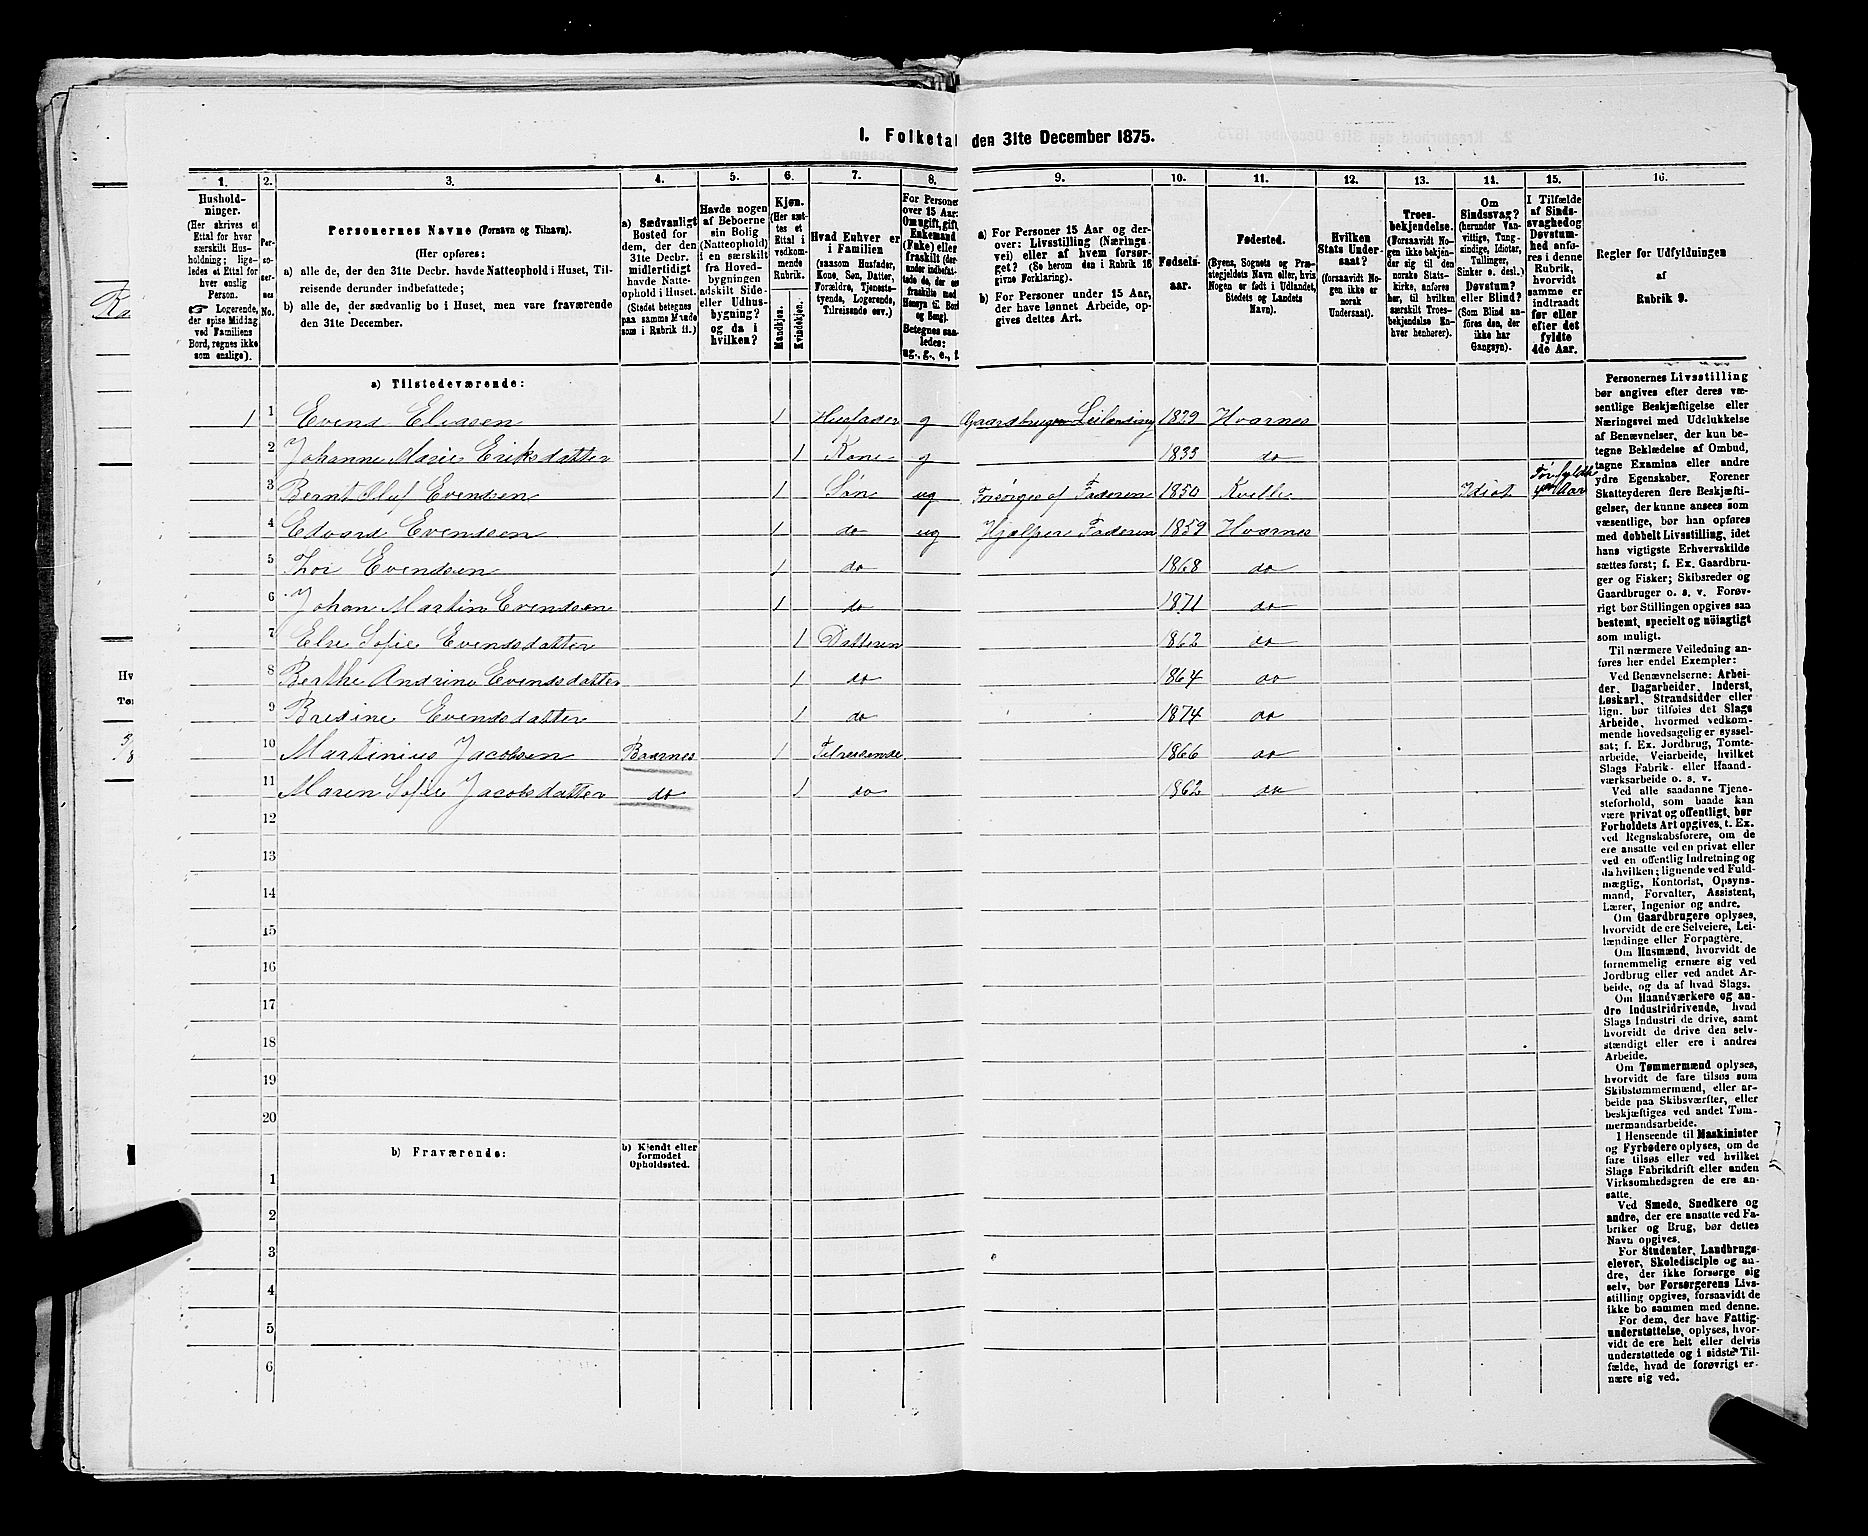 I. Folketal den 31te December 1875.
1. 2. 3. 4. 5. 6. 7. 8. 9. 10. 11. 12. 13. 14. 15. 16.
Hushold-
ninger.
(Her skrives et
Ettal for hver
særskilt Hus-
holdning; lige-
ledes et Ettal for
hver enslig
Person.
☞ Logerende,
der spise Middag
ved Familiens
Bord, regnes ikke
som enslige).
Per-
so-
ner-
nes
No.
Personernes Navne (Fornavn og Tilnavn).
(Her opføres:
a) alle de, der den 31te Decbr. havde Natteophold i Huset, Til-
reisende derunder indbefattede;
b) alle de, der sædvanlig bo i Huset, men vare fraværende
den 31te December.
a) Sædvanligt
Bosted for
dem, der den
31te Decbr.
midlertidigt
havde Natte-
ophold i Huset.
(Stedet betegnes
paa samme Maade
som i Rubrik 11.)
Havde nogen
af Beboerne
sin Bolig
(Natteophold)
i en særskilt
fra Hoved-
bygningen
adskilt Side-
eller Udhus-
bygning?
og da i
hvilken?
Kjøn.
(Her sæt-
tes et
Ettal i
vedkom-
mende
Rubrik.
Mandkjøn.
Kvindekjøn.
Hvad Enhver er
i Familien
(saasom Husfader,
Kone, Søn, Datter,
Forældre, Tjeneste-
tyende, Logerende,
Tilreisende osv.)
For Personer
over 15 Aar:
Om ugift, gift,
Enkemand
(Enke) eller
fraskilt (der-
under indbefat-
tede de, der ere
fraskilte med
Hensyn til Bord
og Seng).
Betegnes saa-
ledes:
ug., g., e., f.
a) For Personer 15 Aar og der-
over: Livsstilling (Nærings-
vei) eller af hvem forsør-
get? (Se herom den i Rubrik 16
givne Forklaring).
b) For Personer under 15 Aar,
der have lønnet Arbeide, op-
gives dettes Art.
Fødsels-
aar.
Fødested.
(Byens, Sognets og Præ-
stegjeldets Navn eller, hvis
Nogen er født i Udlandet,
Stedets og Landets
Navn).
Hvilken
Stats Under-
saat?
(forsaavidt No-
gen ikke er
norsk
Undersaat).
Troes-
bekjendelse.
(Forsaavidt No-
gen ikke bekjen-
der sig til den
norske Stats-
kirke, anføres
her, til hvilken
særskilt Troes-
bekjendelse En-
hver henhører).
Om
Sindssvag?
(herunder Van-
vittige, Tung-
sindige, Idioter,
Tullinger,
Sinker o. desl.)
Døvstum?
eller Blind?
(Som Blind an-
føres den, der
ikke har
Gangsyn).
I Tilfælde
af Sinds-
svaghed og
Døvstum-
hed anfø-
res i denne
Rubrik,
hvorvidt
samme er
indtraadt
før eller
efter det
fyldte
4de Aar.
Regler for Udfyldningen
af
Rubrik 9.
a) Tilstedeværende:
1 1 Evend Eliasen 1 Husfader g Gaardbruger Leilending 1829 Hvarnes
2 Johanne Marie Eriksdatter 1 Kone g 1833 do
3 Bernt Oluf Evendsen 1 Søn ug Forsørges af Faderen 1850 Kvelle Idiot Før fyldte 4de Aar
4 Edvard Evendsen 1 do ug Hjælper Faderen 1859 Hvarnes
5 Thor Evendsen 1 do 1868 do
6 Johan Martin Evendsen 1 do 1871 do
7 Else Sofie Evendsdatter 1 Datteren 1862 do
8 Berthe Andrine Evendsdatter 1 do 1864 do
9 Bredine Evendsdatter 1 do 1874 do
10 Martinius Jacobsen Baarnes 1 Tilreisende 1866 do
11 Maren Sofie Jacobsdatter do 1 do 1862 do
12
13
14
15
16
17
18
19
20
b) Fraværende:
b) Kjendt eller
formodet
Opholdssted.
1
2
3
4
5
6
Personernes Livsstilling
bør angives efter deres væ-
sentlige Beskjæftigelse eller
Næringsvei med Udelukkelse
af Benævnelser, der kun be-
tegne Beklædelse af Ombud,
tagne Examina eller andre
ydre Egenskaber. Forener
Skatteyderen flere Beskjæfti-
gelser, der kunne ansees som
væsentlige, bør han opføres
med dobbelt Livsstilling, idet
hans vigtigste Erhvervskilde
sættes først; f. Ex. Gaardbru-
ger og Fisker; Skibsreder og
Gaardbruger o. s. v. Forøv-
rigt bør Stillingen opgives saa
bestemt, specielt og nöiagtigt
som muligt.
Til nærmere Veiledning an-
føres her endel Exempler:
Ved Benævnelserne: Arbei-
der, Dagarbeider, Inderst,
Løskarl, Strandsidder eller
lign. bør tilføies det Slags
Arbeide, hvormed vedkom-
mende hovedsagelig er syssel-
sat; f. Ex. Jordbrug, Tomte-
arbeide, Veiarbeide, hvilket
Slags Fabrik- eller Haand-
værksarbeide o. s. v.
Ved alle saadanne Tjene-
steforhold, som baade kan
være privat og offentligt, bør
Forholdets Art opgives, t. Ex.
ved Regnskabsførere, om de
ere ansatte ved en privat eller
ved en offentlig Indretning og
da hvilken; lignende ved Fuld-
mægtig, Kontorist, Opsyns-
mand, Forvalter, Assistent,
Lærer, Ingeniør og andre.
Om Gaardbrugere oplyses,
hvorvidt de ere Selveiere, Lei-
lændinge eller Forpagtere.
Om Husmænd, hvorvidt de
fornemmelig ernære sig ved
Jordbrug eller ved andet Ar-
beide, og da af hvad Slags.
Om Haandværkere og an-
dre Industridrivende, hvad
Slags Industri de drive, samt
hvorvidt de drive den selv-
stændigt eller ere i andres
Arbeide.
Om Tømmermænd oplyses,
hvorvidt de fare tilsøs som
Skibstømmermænd, eller ar-
beide paa Skibsværfter, eller
beskjæftiges ved andet Tøm-
mermandsarbeide.
I Henseende til Maskinister
og Fyrbødere oplyses, om de
fare tilsøs eller ved hvilket
Slags Fabrikdrift eller anden
Virksomhedsgren de ere an-
satte.
Ved Smede, Snedkere og
andre, der ere ansatte ved Fa-
briker og Brug, bør dettes
Navn opgives.
For Studenter, Landbrugs-
elever, Skoledisciple og an-
dre, der ikke forsørge sig
selv, bør Forsørgerens Livs-
stilling opgives, forsaavidt de
ikke bo sammen med denne.
For dem, der have Fattig-
understøttelse, oplyses, hvor-
vidt de ere helt eller delvis
understøttede og i sidste Til-
fælde, hvad de forøvrigt er-
nære sig ved.